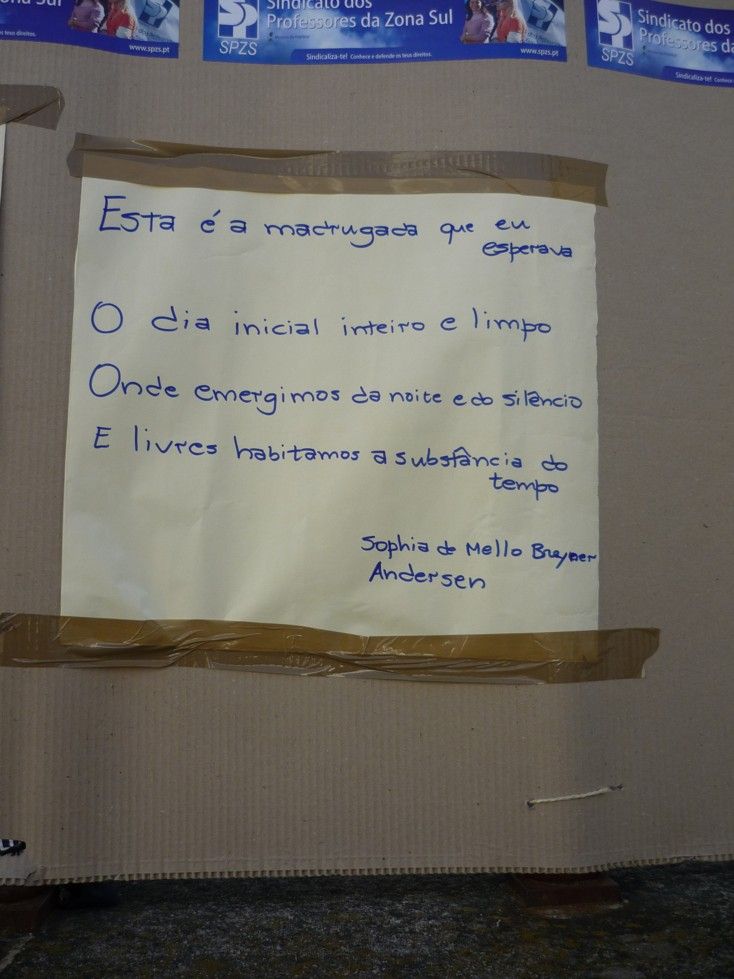 Zona Sul
SPZS
Sindicato dos
Professores da Zona Sul
Sindicaliza-te! Conhece e defende os teus direitos.
www.spzs.pt
Sindicato dos
Professores da
SPZS
Sindicaliza-te!
os teus direitos.
www.spzs.pt
Esta é a madrugada que eu
esperava
O dia inicial inteiro e limpo
Onde emergimos da noite e do silêncio
E livres habitamos a substância do
tempo
Sophia de Mello Breyner
Andersen